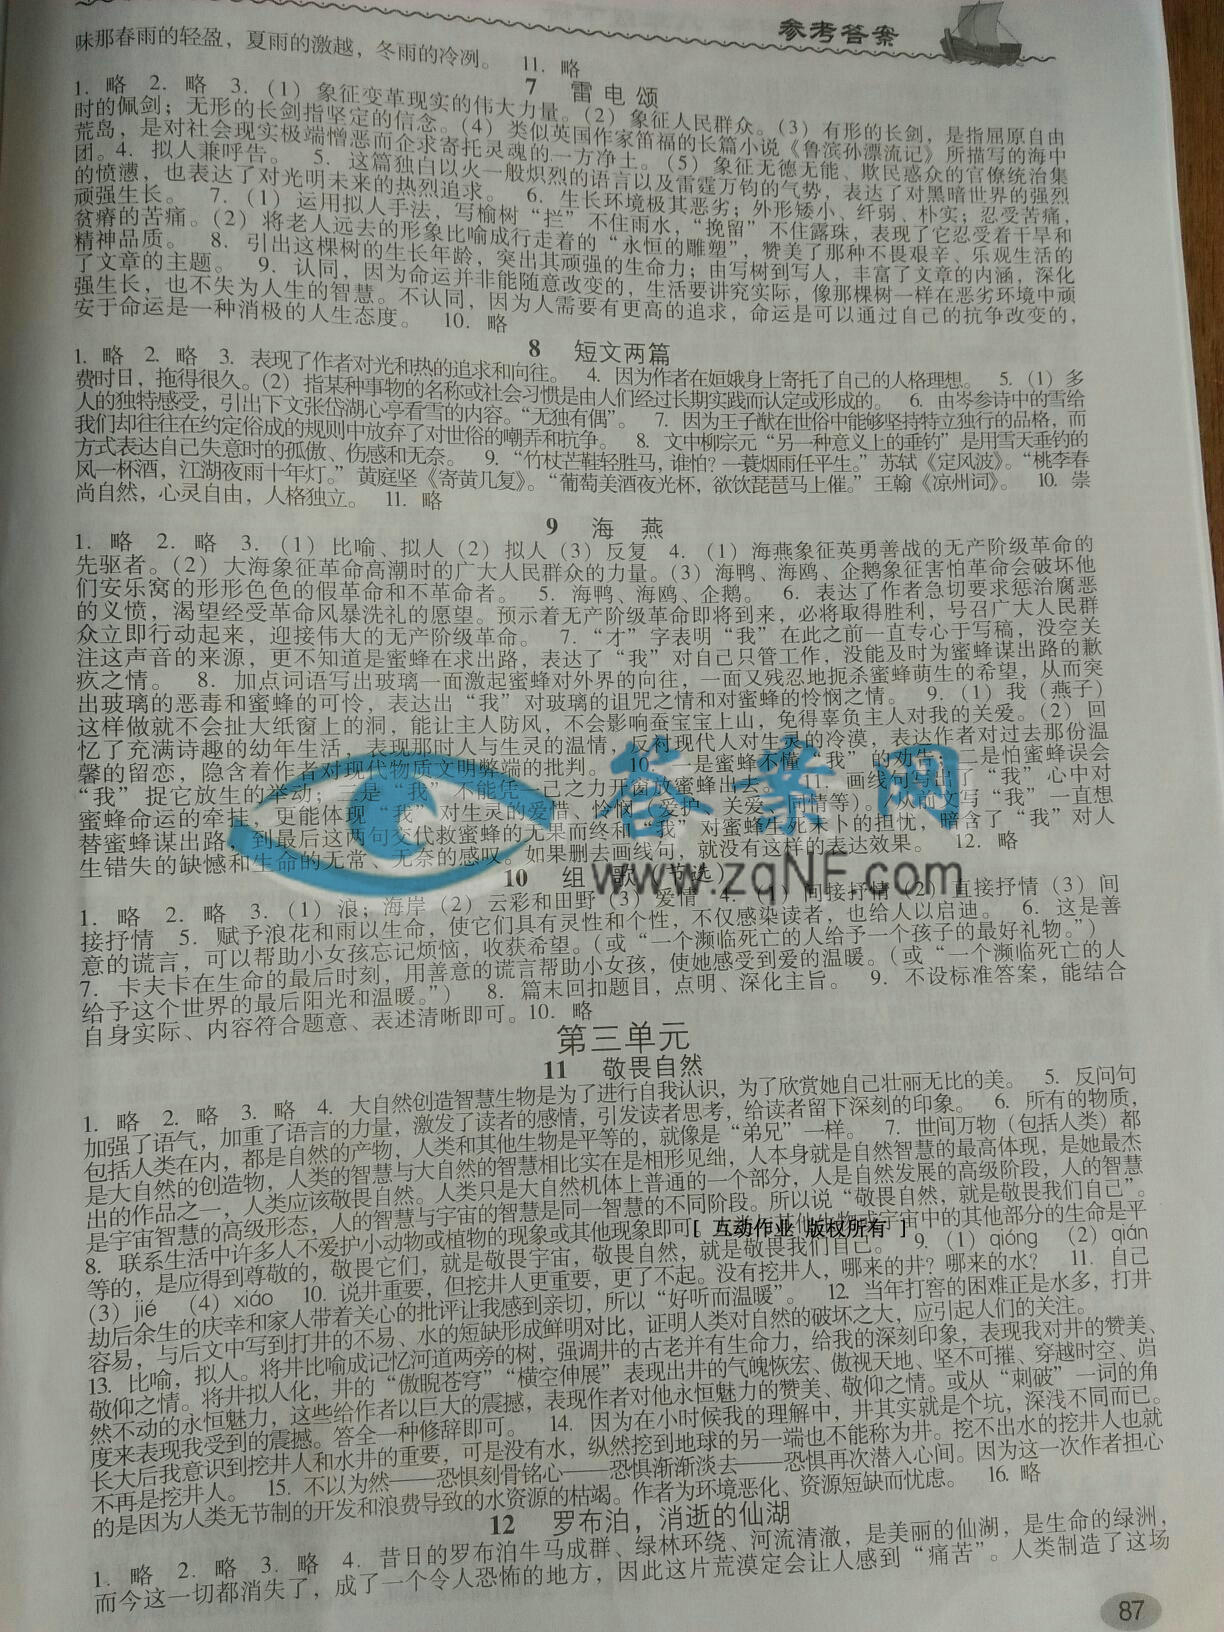 参考答案
味那春雨的轻盈，夏雨的激越，冬雨的冷冽。 11. 略
7 雷电颂
1. 略 2. 略 3.（1）象征变革现实的伟大力量。（2）象征人民群众。（3）有形的长剑，是指屈原自由
时的佩剑；无形的长剑指坚定的信念。（4）类似英国作家笛福的长篇小说《鲁滨孙漂流记》所描写的海中
荒岛，是对社会现实极端憎恶而企求寄托灵魂的一方净土。（5）象征无德无能、欺民惑众的官僚统治集
团。4. 拟人兼呼告。 5. 这篇独白以火一般炽烈的语言以及雷霆万钧的气势，表达了对黑暗世界的强烈
的愤懑，也表达了对光明未来的热烈追求。 6. 生长环境极其恶劣；外形矮小、纤弱、朴实；忍受苦痛，
顽强生长。 7.（1）运用拟人手法，写榆树“拦”不住雨水，“挽留”不住露珠，表现了它忍受着干旱和
贫瘠的苦痛。（2）将老人远去的形象比喻成行走着的“永恒的雕塑”，赞美了那种不畏艰辛、乐观生活的
精神品质。 8. 引出这棵树的生长年龄，突出其顽强的生命力；由写树到写人，丰富了文章的内涵，深化
了文章的主题。 9. 认同，因为命运并非能随意改变的，生活要讲究实际，像那棵树一样在恶劣环境中顽
强生长，也不失为人生的智慧。不认同，因为人需要有更高的追求，命运是可以通过自己的抗争改变的，
安于命运是一种消极的人生态度。 10. 略
8 短文两篇
1. 略 2. 略 3. 表现了作者对光和热的追求和向往。 4. 因为作者在姮娥身上寄托了自己的人格理想。 5.（1）多
费时日，拖得很久。（2）指某种事物的名称或社会习惯是由人们经过长期实践而认定或形成的。 6. 由岑参诗中的雪给
人的独特感受，引出下文张岱湖心亭看雪的内容。“无独有偶”。 7. 因为王子猷在世俗中能够坚持特立独行的品格，而
我们却往往在约定俗成的规则中放弃了对世俗的嘲弄和抗争。 8. 文中柳宗元“另一种意义上的垂钓”是用雪天垂钓的
方式表达自己失意时的孤傲、伤感和无奈。 9. “竹杖芒鞋轻胜马，谁怕？一蓑烟雨任平生。”苏轼《定风波》。“桃李春
风一杯酒，江湖夜雨十年灯。”黄庭坚《寄黄几复》。“葡萄美酒夜光杯，欲饮琵琶马上催。”王翰《凉州词》。 10. 崇
尚自然，心灵自由，人格独立。 11. 略
9 海燕
1. 略 2. 略 3.（1）比喻、拟人（2）拟人（3）反复 4.（1）海燕象征英勇善战的无产阶级革命的
先驱者。（2）大海象征革命高潮时的广大人民群众的力量。（3）海鸭、海鸥、企鹅象征害怕革命会破坏他
们安乐窝的形形色色的假革命和不革命者。 5. 海鸭、海鸥、企鹅。 6. 表达了作者急切要求惩治腐恶
的义愤，渴望经受革命风暴洗礼的愿望。预示着无产阶级革命即将到来，必将取得胜利，号召广大人民群
众立即行动起来，迎接伟大的无产阶级革命。 7. “才”字表明“我”在此之前一直专心于写稿，没空关
注这声音的来源，更不知道是蜜蜂在求出路，表达了“我”对自己只管工作，没能及时为蜜蜂谋出路的歉
疚之情。 8. 加点词语写出玻璃一面激起蜜蜂对外界的向往，一面又残忍地扼杀蜜蜂萌生的希望，从而突
出玻璃的恶毒和蜜蜂的可怜，表达出“我”对玻璃的诅咒之情和对蜜蜂的怜悯之情。 9.（1）我（燕子）
这样做就不会扯大纸窗上的洞，能让主人防风，不会影响蚕宝宝上山，免得辜负主人对我的关爱。（2）回
忆了充满诗趣的幼年生活，表现那时人与生灵的温情，反衬现代人对生灵的冷漠，表达作者对过去那份温
馨的留恋，隐含着作者对现代物质文明弊端的批判。 10. 一是蜜蜂不懂“我”的劝告；二是怕蜜蜂误会
“我”捉它放生的举动；三是“我”不能凭一己之力开窗放蜜蜂出去。 11. 画线句写出了“我”心中对
蜜蜂命运的牵挂，更能体现“我”对生灵的爱惜、怜悯（爱护、关爱、同情等）。从前文写“我”一直想
替蜜蜂谋出路，到最后这两句交代救蜜蜂的无果而终和“我”对蜜蜂生死未卜的担忧，暗含了“我”对人
生错失的缺憾和生命的无常、无奈的感叹。如果删去画线句，就没有这样的表达效果。 12. 略
答案网
www.zqNF.com
10 组歌（节选）
1. 略 2. 略 3.（1）浪；海岸（2）云彩和田野（3）爱情 4.（1）间接抒情（2）直接抒情（3）间
接抒情 5. 赋予浪花和雨以生命，使它们具有灵性和个性，不仅感染读者，也给人以启迪。 6. 这是善
意的谎言，可以帮助小女孩忘记烦恼，收获希望。（或“一个濒临死亡的人给予一个孩子的最好礼物。”）
7. 卡夫卡在生命的最后时刻，用善意的谎言帮助小女孩，使她感受到爱的温暖。（或“一个濒临死亡的人
给予这个世界的最后阳光和温暖。”） 8. 篇末回扣题目，点明、深化主旨。 9. 不设标准答案，能结合
自身实际、内容符合题意、表述清晰即可。10. 略
第三单元
11 敬畏自然
1. 略 2. 略 3. 略 4. 大自然创造智慧生物是为了进行自我认识，为了欣赏她自己壮丽无比的美。 5. 反问句
加强了语气，加重了语言的力量，激发了读者的感情，引发读者思考，给读者留下深刻的印象。 6. 所有的物质，
包括人类在内，都是自然的产物，人类和其他生物是平等的，就像是“弟兄”一样。 7. 世间万物（包括人类）都
是大自然的创造物，人类的智慧与大自然的智慧相比实在是相形见绌，人本身就是自然智慧的最高体现，是她最杰
出的作品之一，人类应该敬畏自然。人类只是大自然机体上普通的一个部分，人是自然发展的高级阶段，人的智慧
是宇宙智慧的高级形态，人的智慧与宇宙的智慧是同一智慧的不同阶段。所以说“敬畏自然，就是敬畏我们自己”。
8. 联系生活中许多人不爱护小动物或植物的现象或其他现象即可[ 互动作业 版权所有 ]宇宙中的其他部分的生命是平
等的，是应得到尊敬的，敬畏它们，就是敬畏宇宙，敬畏自然，就是敬畏我们自己。 9.（1）qióng （2）qián
（3）jié （4）xiáo 10. 说井重要，但挖井人更重要，更了不起。没有挖井人，哪来的井？哪来的水？ 11. 自己
劫后余生的庆幸和家人带着关心的批评让我感到亲切，所以“好听而温暖”。 12. 当年打窖的困难正是水多，打井
容易，与后文中写到打井的不易、水的短缺形成鲜明对比，证明人类对自然的破坏之大，应引起人们的关注。
13. 比喻，拟人。将井比喻成记忆河道两旁的树，强调井的古老并有生命力，给我的深刻印象，表现我对井的赞美、
敬仰之情。将井拟人化，井的“傲睨苍穹”“横空伸展”表现出井的气魄恢宏、傲视天地、坚不可摧、穿越时空、岿
然不动的永恒魅力，这些给作者以巨大的震撼，表现作者对他永恒魅力的赞美、敬仰之情。或从“刺破”一词的角
度来表现我受到的震撼。答全一种修辞即可。 14. 因为在小时候我的理解中，井其实就是个坑，深浅不同而已。
长大后我意识到挖井人和水井的重要，可是没有水，纵然挖到地球的另一端也不能称为井。挖不出水的挖井人也就
不再是挖井人。 15. 不以为然——恐惧刻骨铭心——恐惧渐渐淡去——恐惧再次潜入心间。因为这一次作者担心
的是因为人类无节制的开发和浪费导致的水资源的枯竭。作者为环境恶化、资源短缺而忧虑。 16. 略
12 罗布泊，消逝的仙湖
1. 略 2. 略 3. 略 4. 昔日的罗布泊牛马成群、绿林环绕、河流清澈，是美丽的仙湖，是生命的绿洲，
而今这一切都消失了，成了一个令人恐怖的地方，因此这片荒漠定会让人感到“痛苦”。人类制造了这场
87